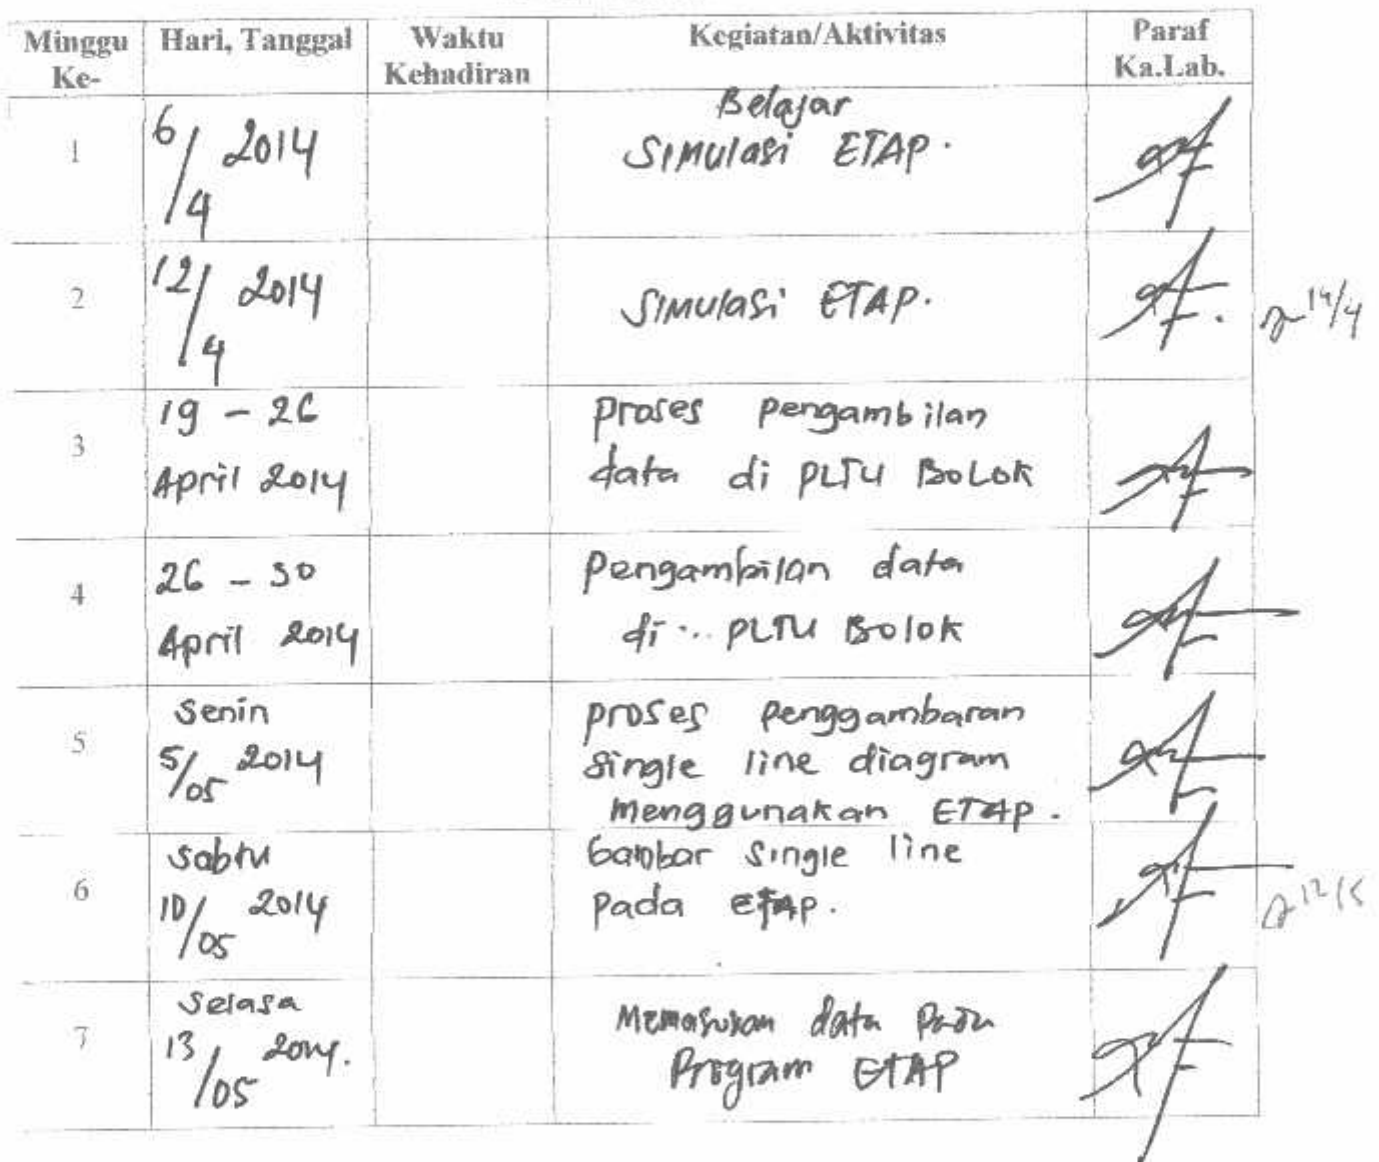 Minggu Ke-
Hari, Tanggal
Waktu Kehadiran
Kegiatan/Aktivitas
Paraf Ka.Lab.
1
6/4 2014
Belajar
Simulasi ETAP.
2
12/4 2014
Simulasi ETAP.
14/4
3
19 - 26
April 2014
Proses Pengambilan
data di PLTU Bolok
4
26 - 30
April 2014
Pengambilan data
di .. PLTU Bolok
5
Senin
5/05 2014
proses penggambaran
single line diagram
menggunakan ETAP.
6
Sabtu
10/05 2014
Gambar Single line
pada ETAP.
12/5
7
Selasa
13/05 2014.
Memasukan data pada
Program ETAP